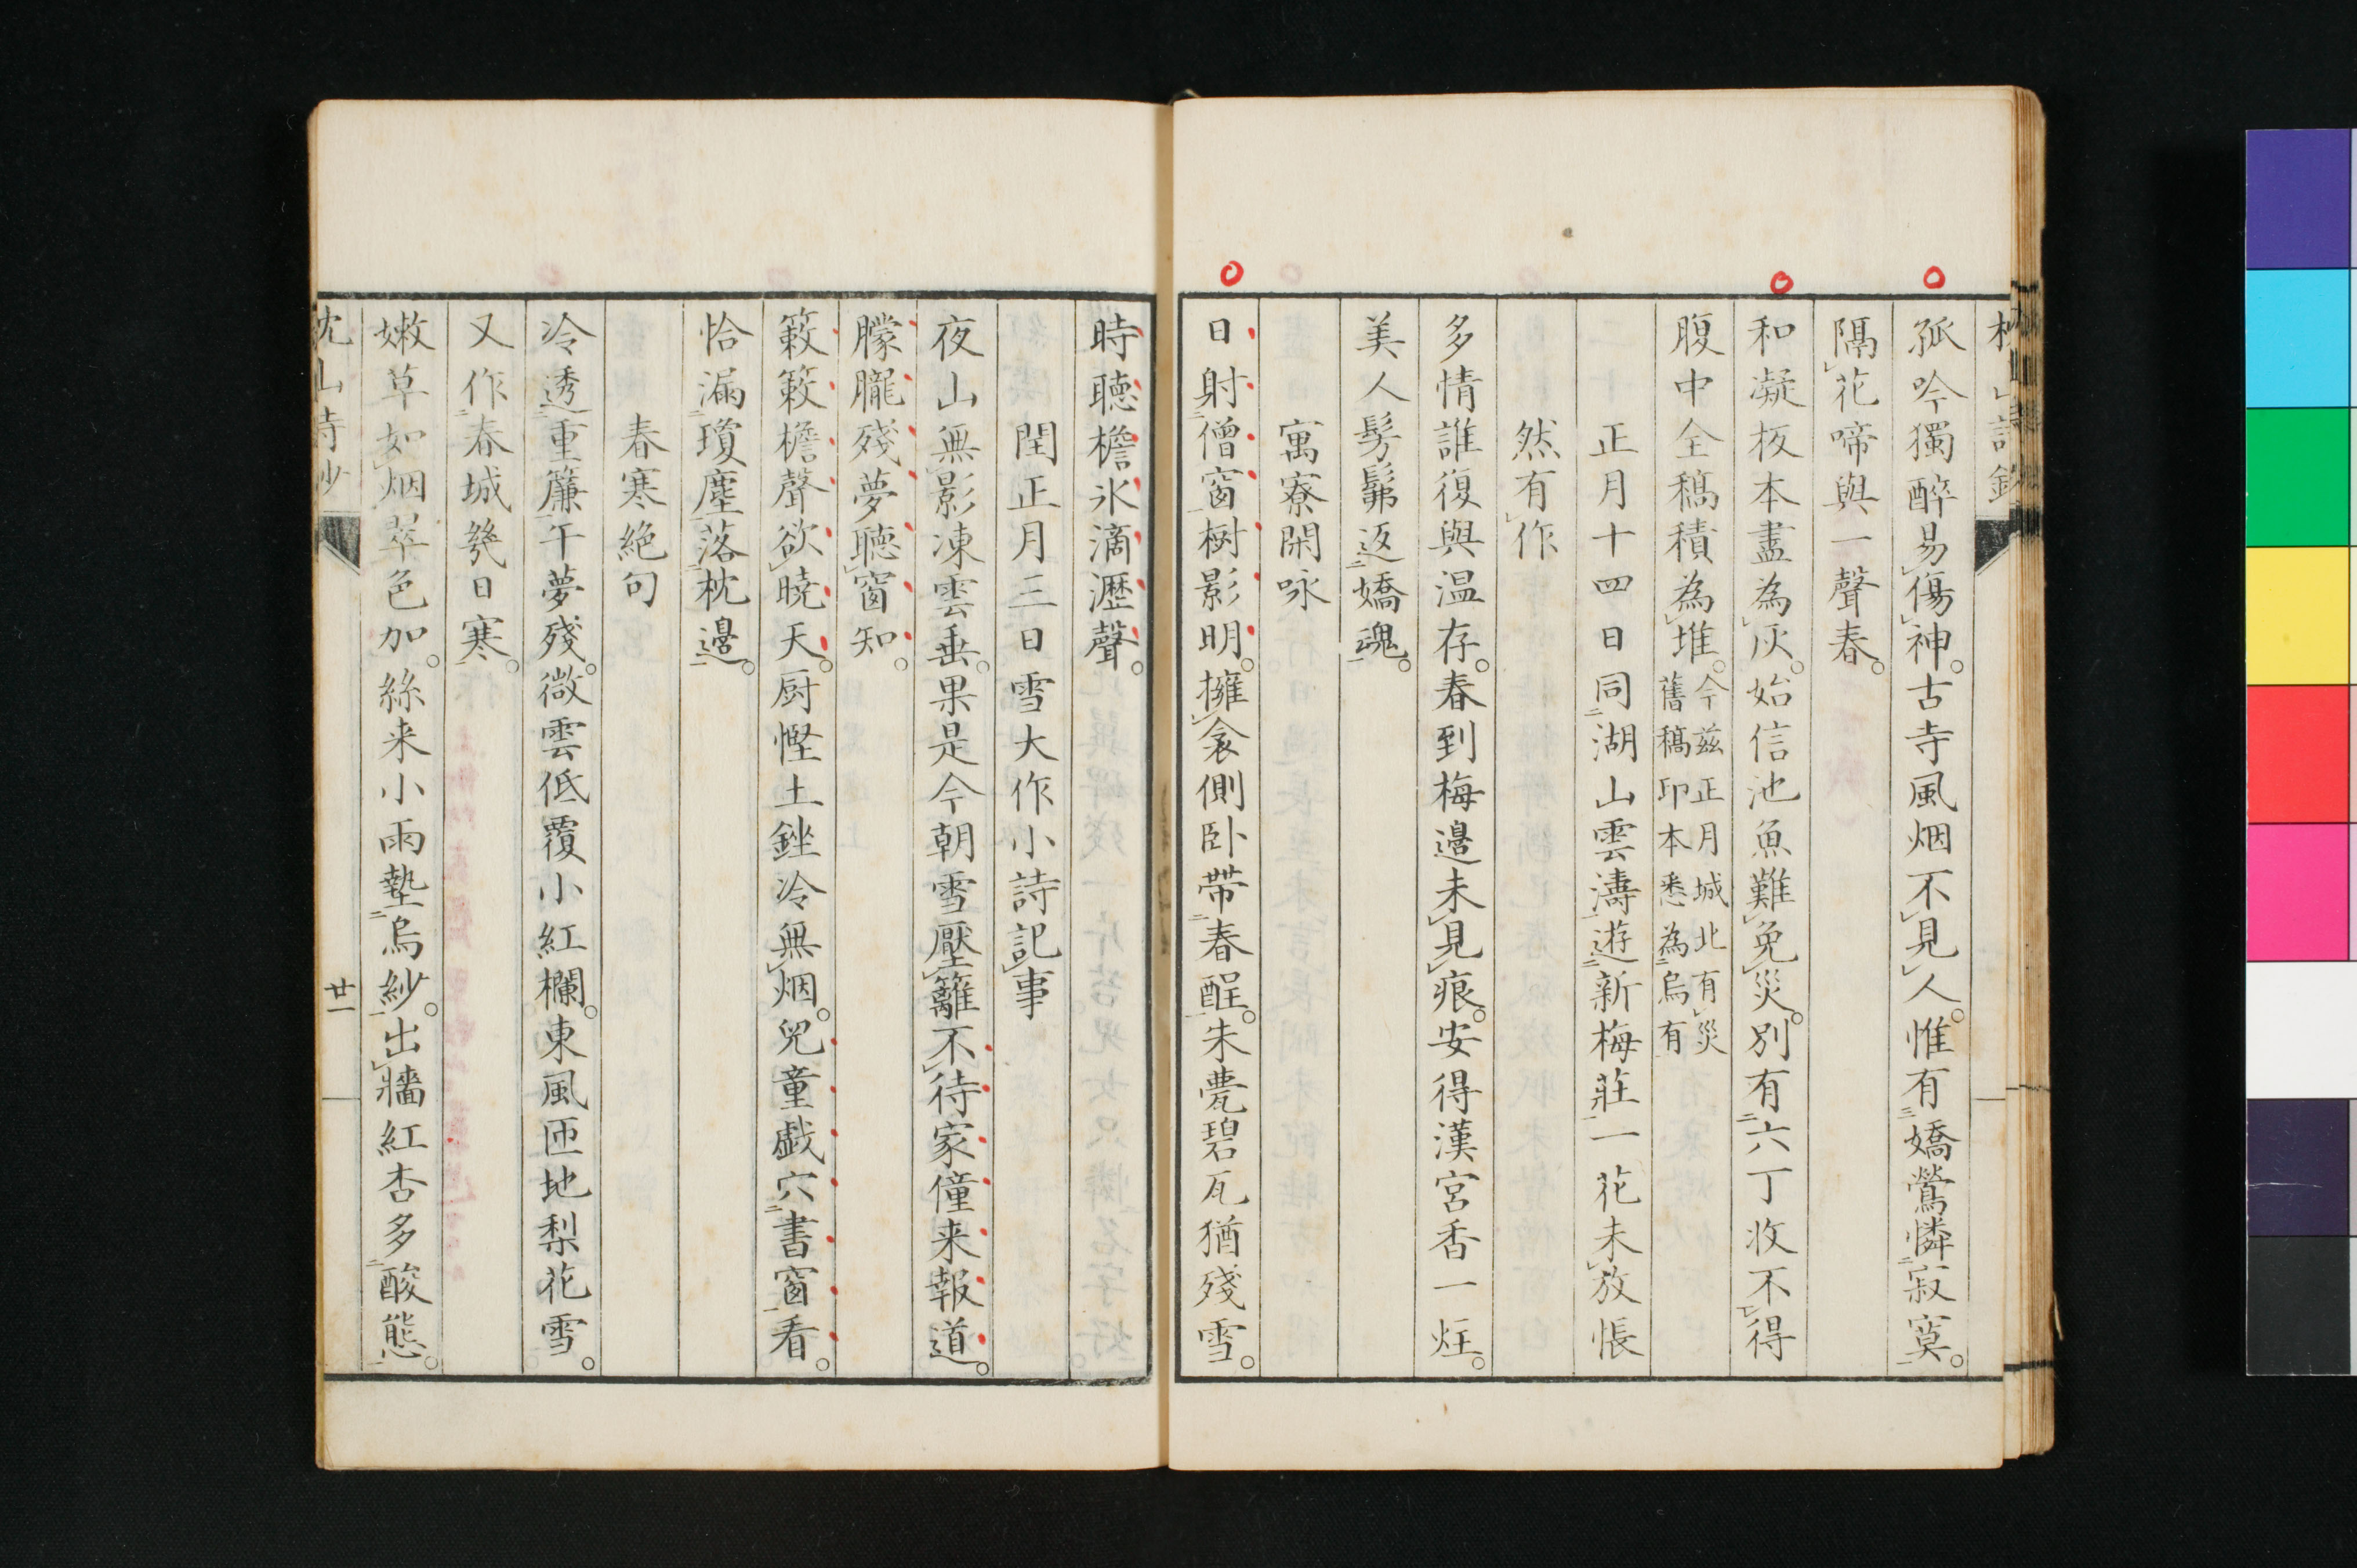 枕山詩鈔
孤吟獨醉易傷神。古寺風烟不見人。惟有嬌鶯憐寂寞。
隔花啼與一聲春。
和凝板本盡為灰。始信池魚難免災。別有六丁收不得
腹中全稿積為堆。今茲正月城北有災
舊稿印本悉為烏有
正月十四日同湖山雲濤遊新梅莊一花未放悵
然有作
多情誰復與温存。春到梅邊未見痕。安得漢宮香一炷。
美人髣髴返嬌魂。
寓寮閑咏
日射僧窗樹影明。擁衾側臥帶春酲。朱甍碧瓦猶殘雪。
時聽檐氷滴瀝聲。
閏正月三日雪大作小詩記事
夜山無影凍雲垂。果是今朝雪壓籬。不待家僮来報道。
朦朧殘夢聴窗知。
簌簌檐聲欲曉天。厨慳土銼冷無烟。兒童戯穴書窗看。
恰漏瓊塵落枕邊。
春寒絶句
冷透重簾午夢殘。微雲低覆小紅欄。東風匝地梨花雪。
又作春城幾日寒。
嫩草如烟翠色加。絲来小雨墊烏紗。出牆紅杏多酸態。
枕山詩鈔
廿一